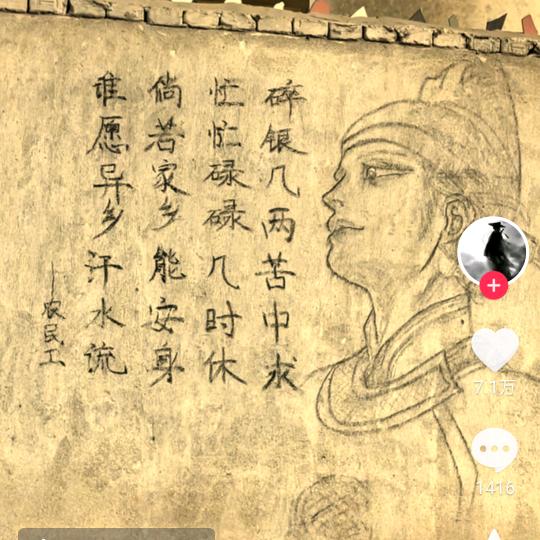 碎银几两苦中求
忙忙碌碌几时休
倘若家乡能安身
谁愿异乡汗水流
—农民工
7.1万
1416